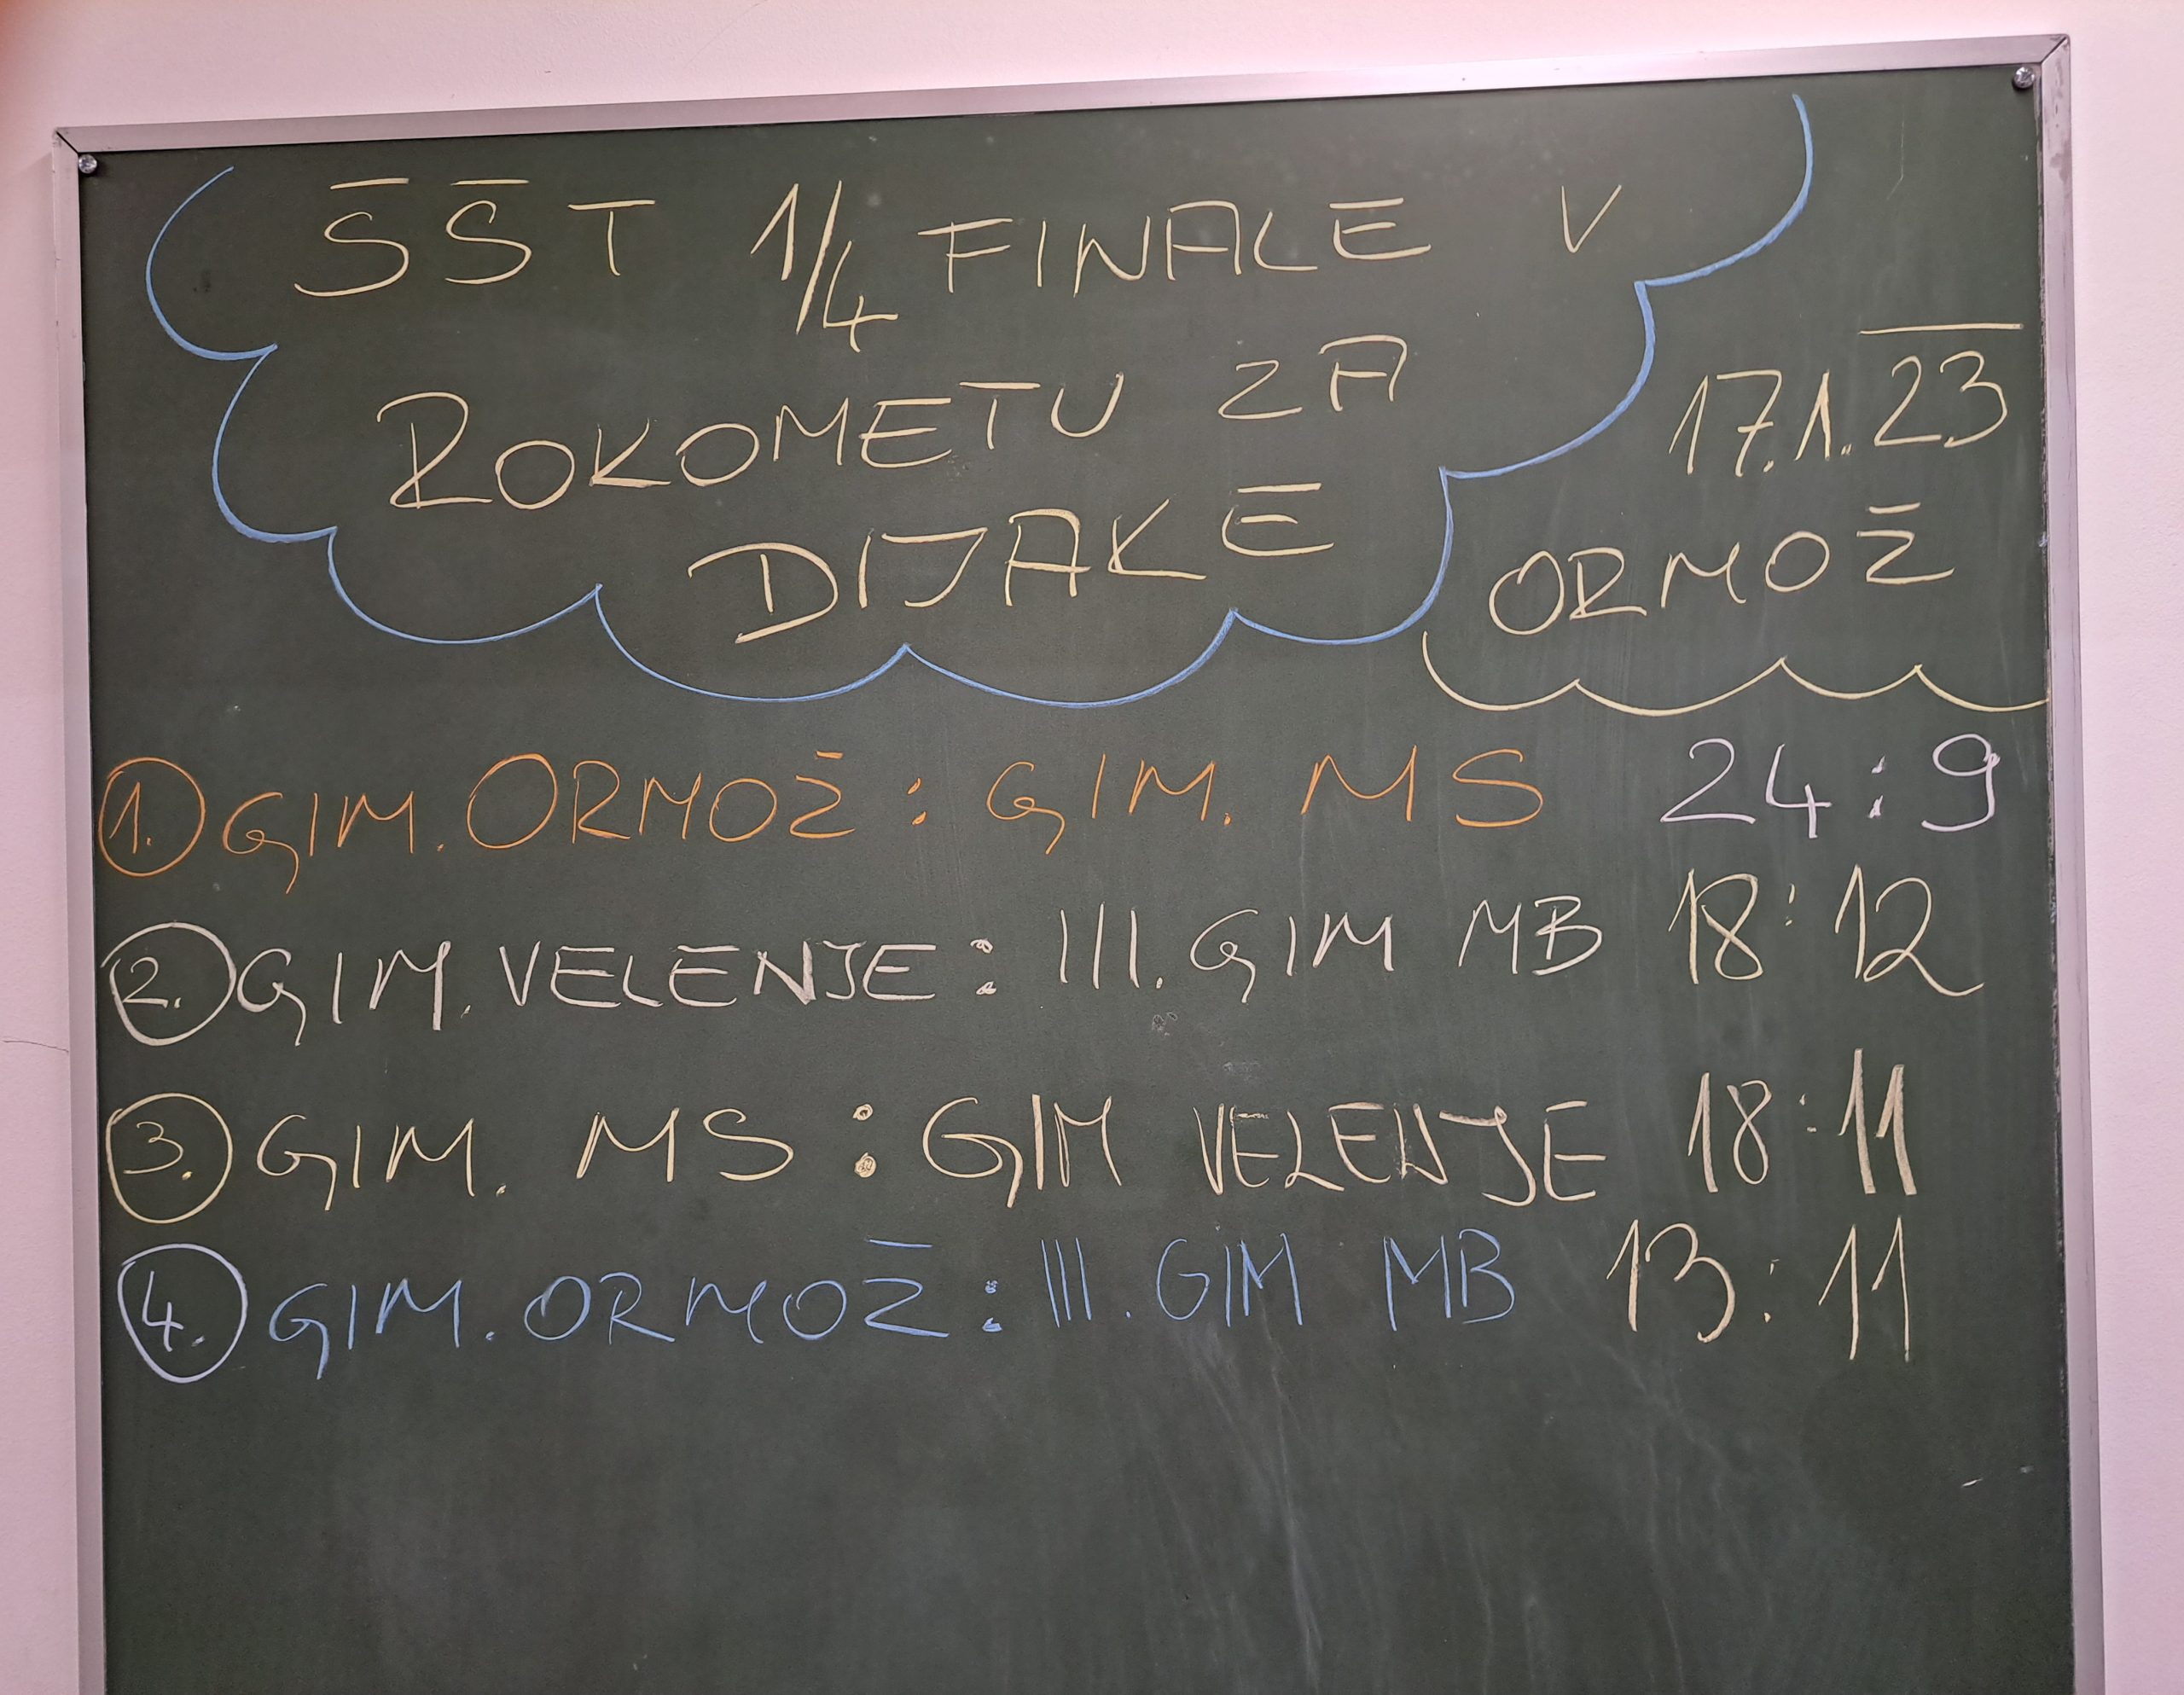 ŠŠT 1/4 FINALE V
ROKOMETU ZA
DIJAKE
17.1.23
ORMOŽ
1. GIM. ORMOŽ : GIM. MS 24:9
2. GIM. VELENJE : III. GIM MB 18:12
3. GIM. MS : GIM VELENJE 18:11
4. GIM. ORMOŽ : III. GIM MB 13:11